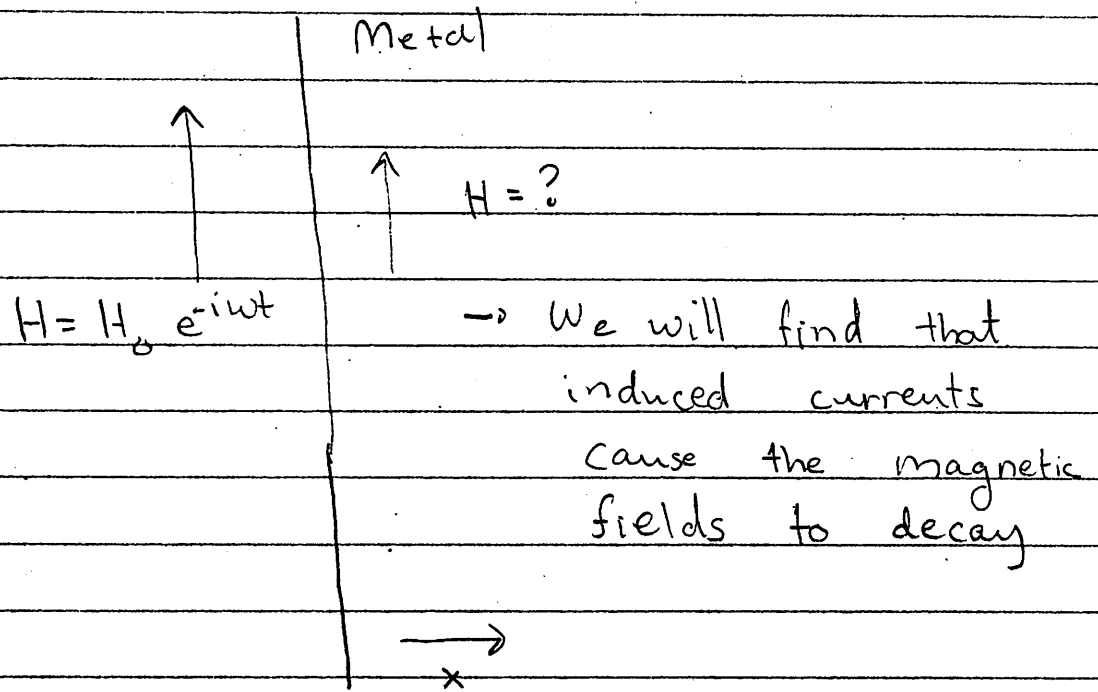 Metal
H = ?
H = H₀ e^{-iωt}
→ We will find that
induced currents
cause the magnetic
fields to decay
x